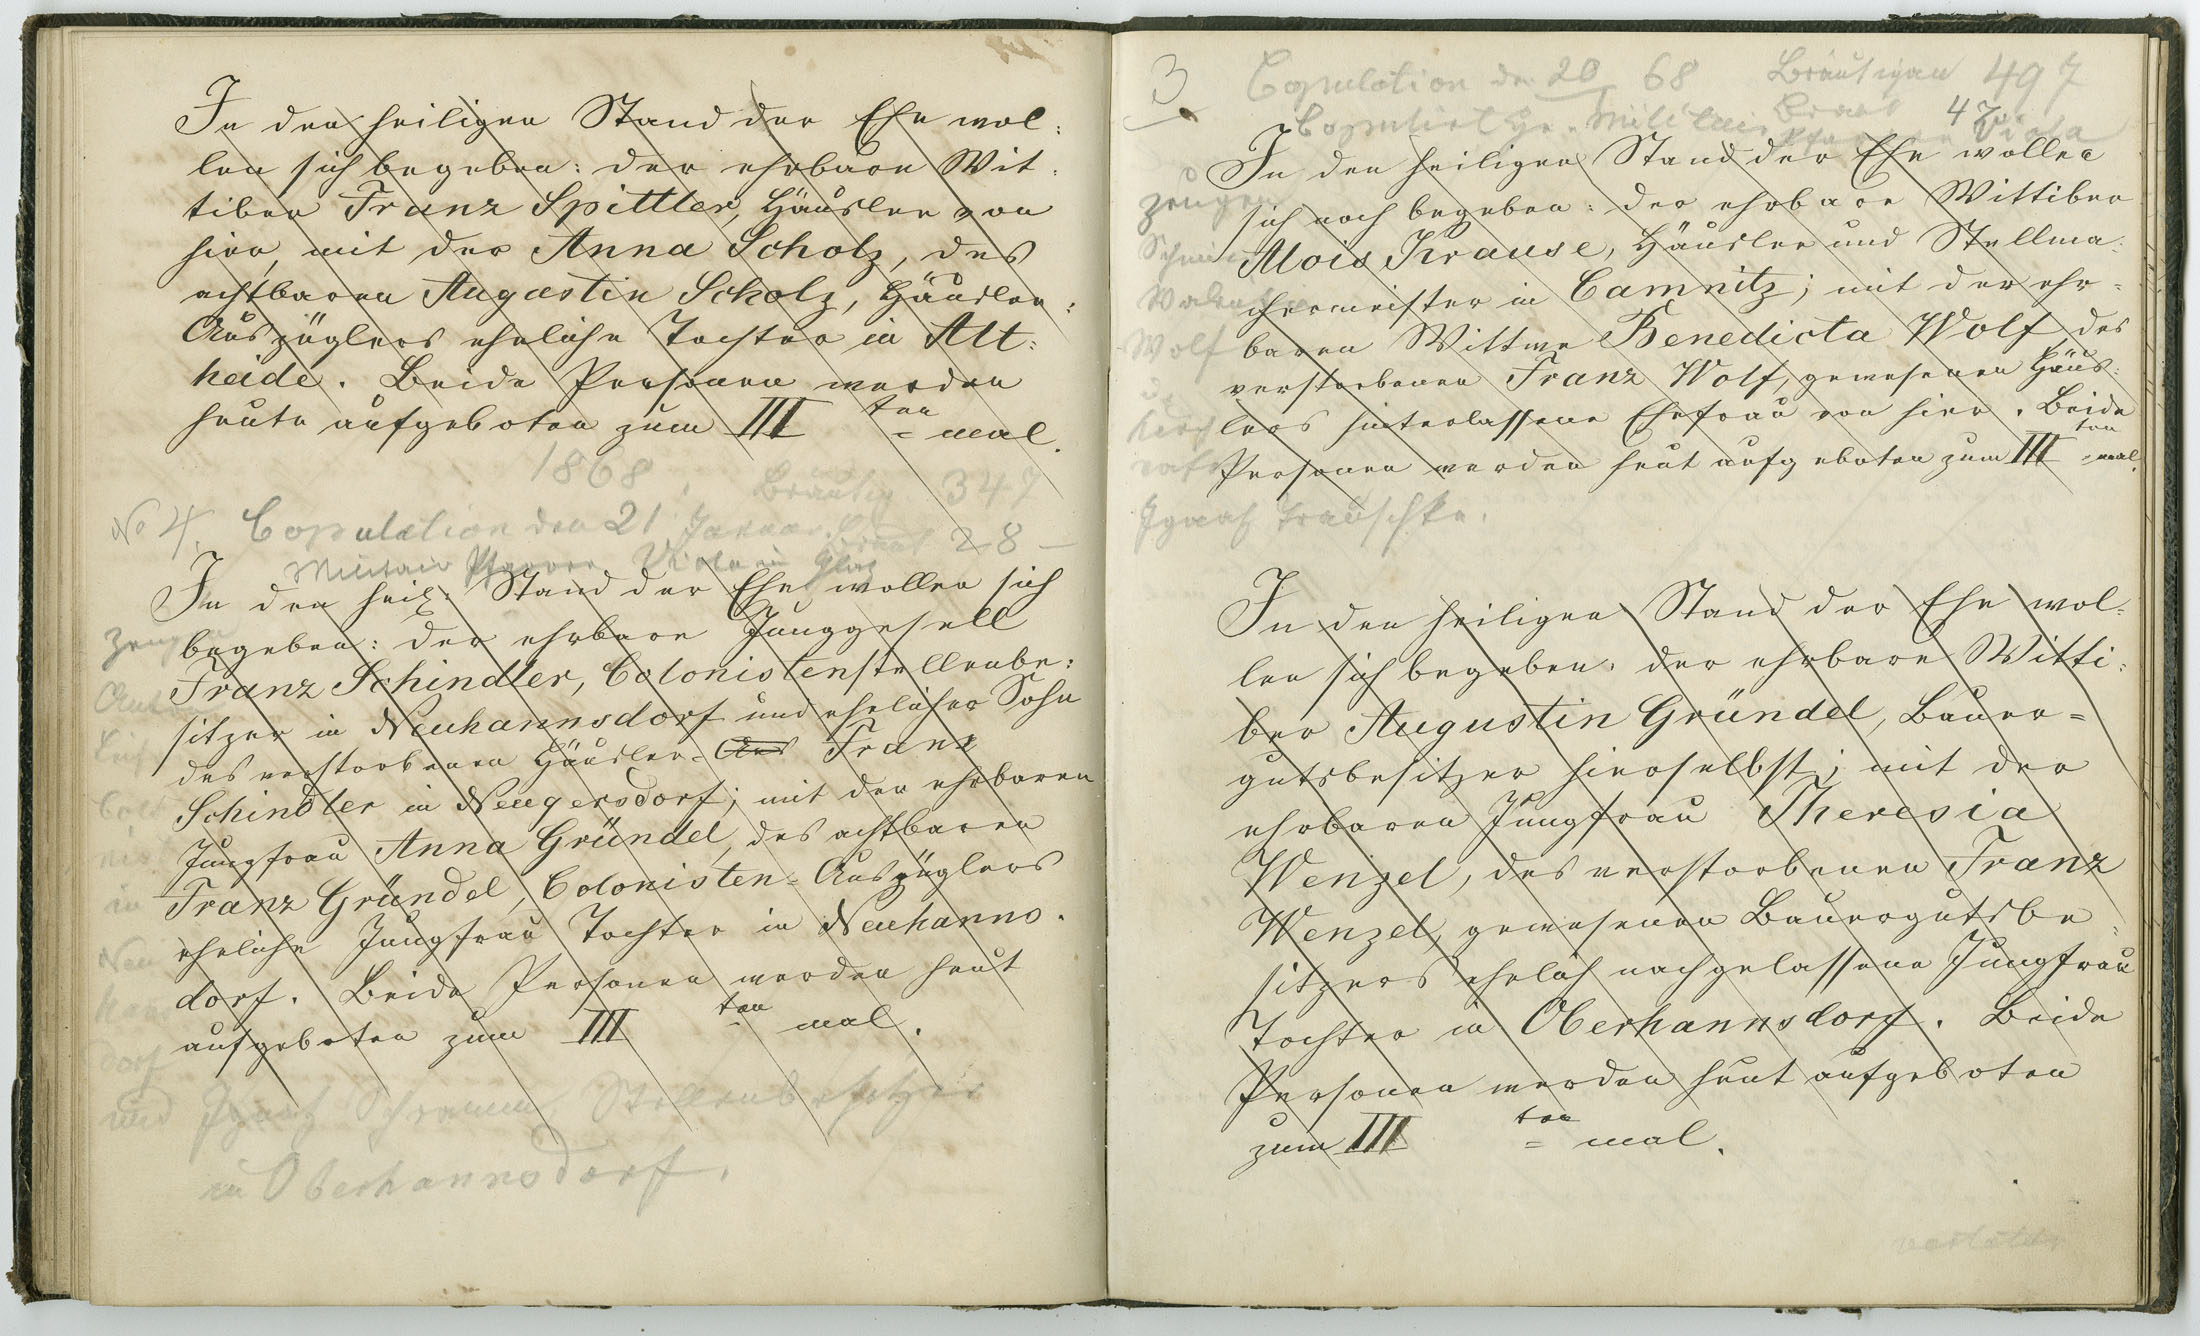 In den heiligen Stand der Ehe wol:
len sich begeben: der ehrbare Wit:
tiber Franz Spittler, Häusler von
hier, mit der Anna Scholz, des
achtbaren Augustin Scholz, Häusler:
Auszüglers eheliche Tochter in Alt:
heide. Beide Personen werden
heute aufgeboten zum III ten = mal.
1868 Bräutig 347
No 4. Copulation den 21 Januar. Braut 28 –
Militair Pfarrer Viola in Glaz
In den heil: Stand der Ehe wollen sich
begeben: der ehrbare Junggesell
Franz Schindler, Colonistenstellenbe:
sitzer in Neuhannsdorf und ehelicher Sohn
des verstorbenen Häusler= Franz
Schindler in Neugersdorf; mit der ehrbaren
Jungfrau Anna Gründel, des achtbaren
Franz Gründel, Colonisten=Auszüglers
eheliche Jungfrau Tochter in Neuhanns.
dorf. Beide Personen werden heut
aufgeboten zum III ten mal.
Zeugen
Colo
nis
in
Neu
hanns
dorf
und Ignatz Schramm Stellenbesitzer
in Oberhannsdorf.
3 Copulation de. 20 68 Bräutigam 497
Copulirt Hr. Militair Braut 47
Pfarrer Viola
In den heiligen Stand der Ehe wollen
sich noch begeben: der ehrbare Wittiber
Alois Krause, Häusler und Stellma:
chermeister in Camnitz; mit der ehr=
baren Wittwe Benedicta Wolf, des
verstorbenen Franz Wolf, gewesenen Häus:
lers hinterlassene Ehefrau von hier. Beide
Personen werden heut aufgeboten zum III ten =mal.
Zeugen
Wolf
u.
Ignatz Trauschke.
In den heiligen Stand der Ehe wol=
len sich begeben: der ehrbare Witti:
ber Augustin Gründel, Bauer=
gutsbesitzer hierselbst; mit der
ehrbaren Jungfrau Theresia
Wenzel, des verstorbenen Franz
Wenzel, gewesenen Bauergutsbe:
sitzers ehelich nachgelassene Jungfrau
Tochter in Oberhannsdorf. Beide
Personen werden heut aufgeboten
zum III ten = mal.